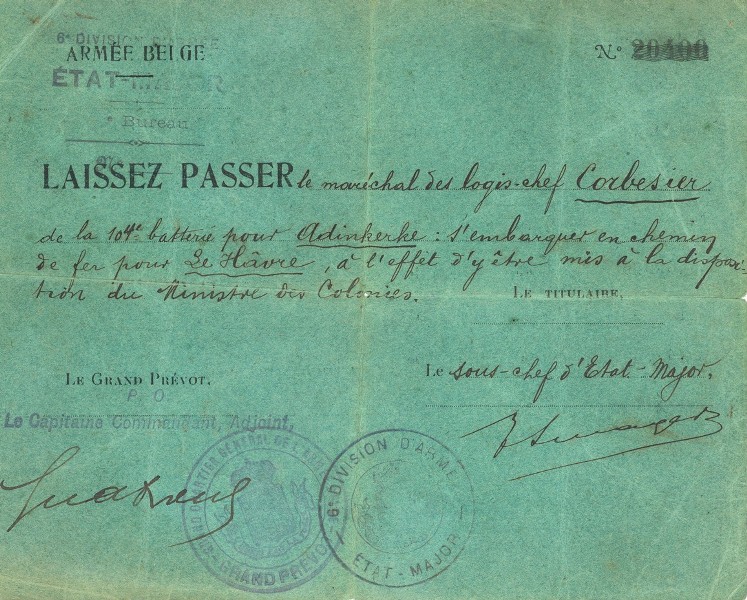 6e DIVISION D'ARMÉE
ARMÉE BELGE
N.° 20400
ÉTAT-MAJOR
e Bureau
LAISSEZ PASSER le maréchal des logis-chef Corbesier
de la 104e batterie pour Adinkerke : s'embarquer en chemin
de fer pour Le Hâvre, à l'effet d'y être mis à la disposi-
tion du Ministre des Colonies.
LE TITULAIRE,
LE GRAND PRÉVOT,
Le sous-chef d'Etat-Major,
P. O.
Le Capitaine Commandant, Adjoint,
GÉNÉRAL DE L'ARMÉE
GRAND PRÉVOT
6e DIVISION D'ARMÉE
ÉTAT-MAJOR